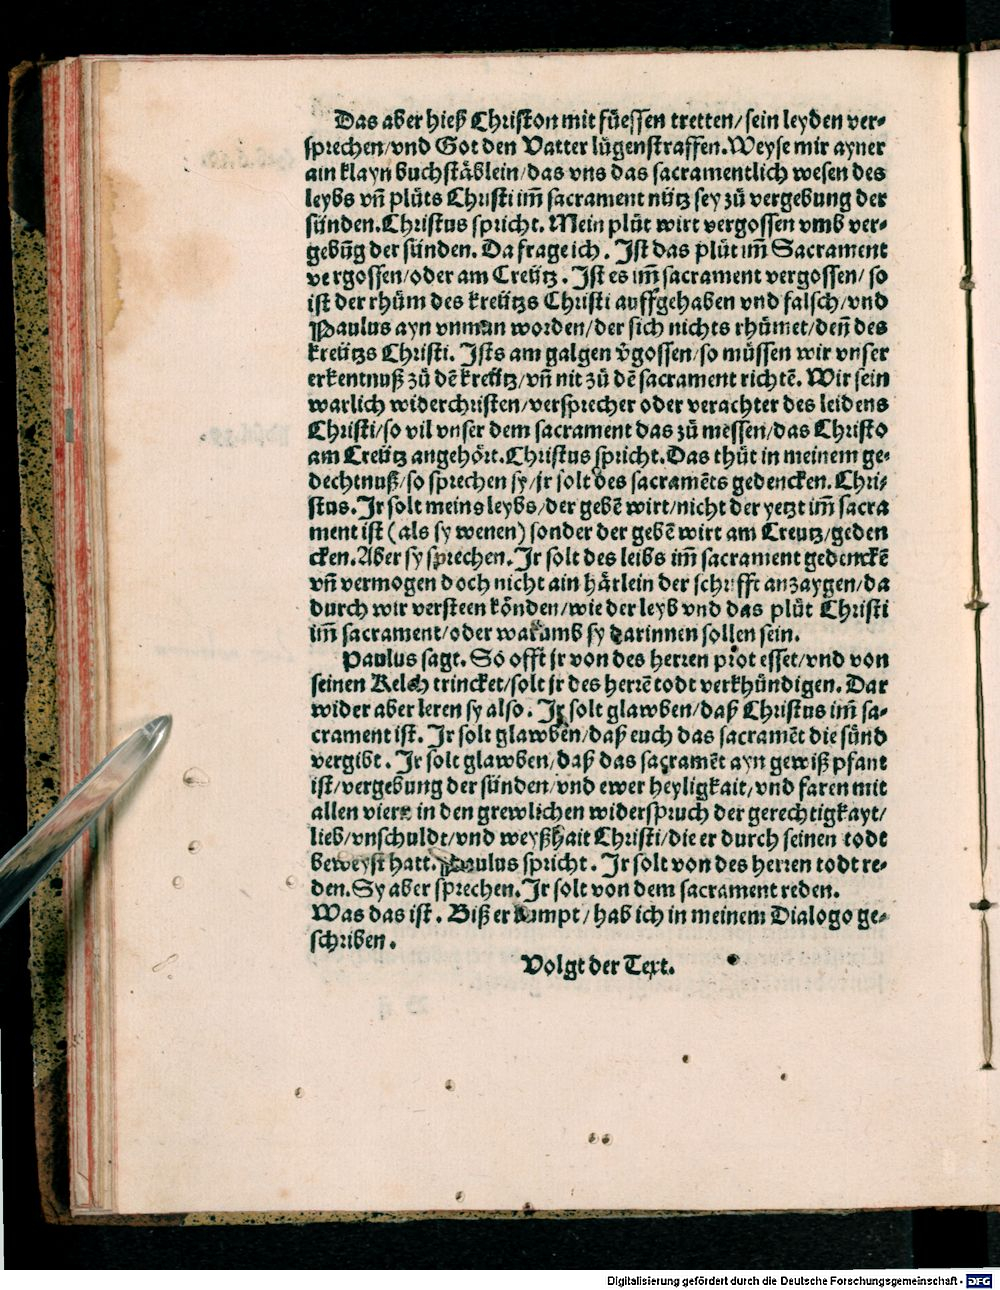 Das aber hieß Christon mit füessen tretten/ sein leyden ver-
sprechen/vnd Got den Vatter lügenstraffen. Weyse mir ayner
ain klayn buchstäblein/das vns das sacramentlich wesen des
leybs vñ plůts Christi im̃ sacrament nütz sey zů vergebung der
sünden. Christus spricht. Mein plůt wirt vergossen vmb ver-
gebũg der sünden. Da frage ich. Ist das plůt im̃ Sacrament
vergossen/oder am Creütz. Ist es im̃ sacrament vergossen/ so
ist der rhům des kreützs Christi auffgehaben vnd falsch/vnd
Paulus ayn vnman worden/der sich nichts rhümet/deñ des
kreützs Christi. Ists am galgen v̄gossen/so müssen wir vnser
erkentnuß zů dē kreütz/vñ nit zů dē sacrament richtē. Wir sein
warlich widerchristen/versprecher oder verachter des leidens
Christi/so vil vnser dem sacrament das zů messen/das Christo
am Creütz angehört. Christus spricht. Das thůt in meinem ge-
dechtnuß/so sprechen sy/jr solt des sacramēts gedencken. Chri-
stus. Jr solt meins leybs/der gebē wirt/nicht der yetzt im̃ sacra
ment ist (als sy wenen) sonder der gebē wirt am Creutz/geden
cken. Aber sy sprechen. Jr solt des leibs im̃ sacrament gedenckē
vñ vermogen doch nicht ain härlein der schrifft anzaygen/da
durch wir versteen könden/wie der leyb vnd das plůt Christi
im̃ sacrament/oder warumb sy darinnen sollen sein.
Paulus sagt. So offt jr von des herren prot esset/vnd von
seinen Kelch trincket/solt jr des herrē todt verkhündigen. Dar
wider aber leren sy also. Jr solt glawben/daß Christus im̃ sa-
crament ist. Jr solt glawben/daß euch das sacramēt die sünd
vergibt. Jr solt glawben/daß das sacramēt ayn gewiß pfant
ist/vergebung der sünden/vnd ewer heyligkait/vnd faren mit
allen viere in den grewlichen widerspruch der gerechtigkayt/
lieb/vnschuldt/vnd weyßhait Christi/die er durch seinen todt
beweyst hatt. Paulus spricht. Jr solt von des herren todt re-
den. Sy aber sprechen. Jr solt von dem sacrament reden.
Was das ist. Biß er kumpt/hab ich in meinem Dialogo ge-
schriben.
Volgt der Text.
Digitalisierung gefördert durch die Deutsche Forschungsgemeinschaft - DFG